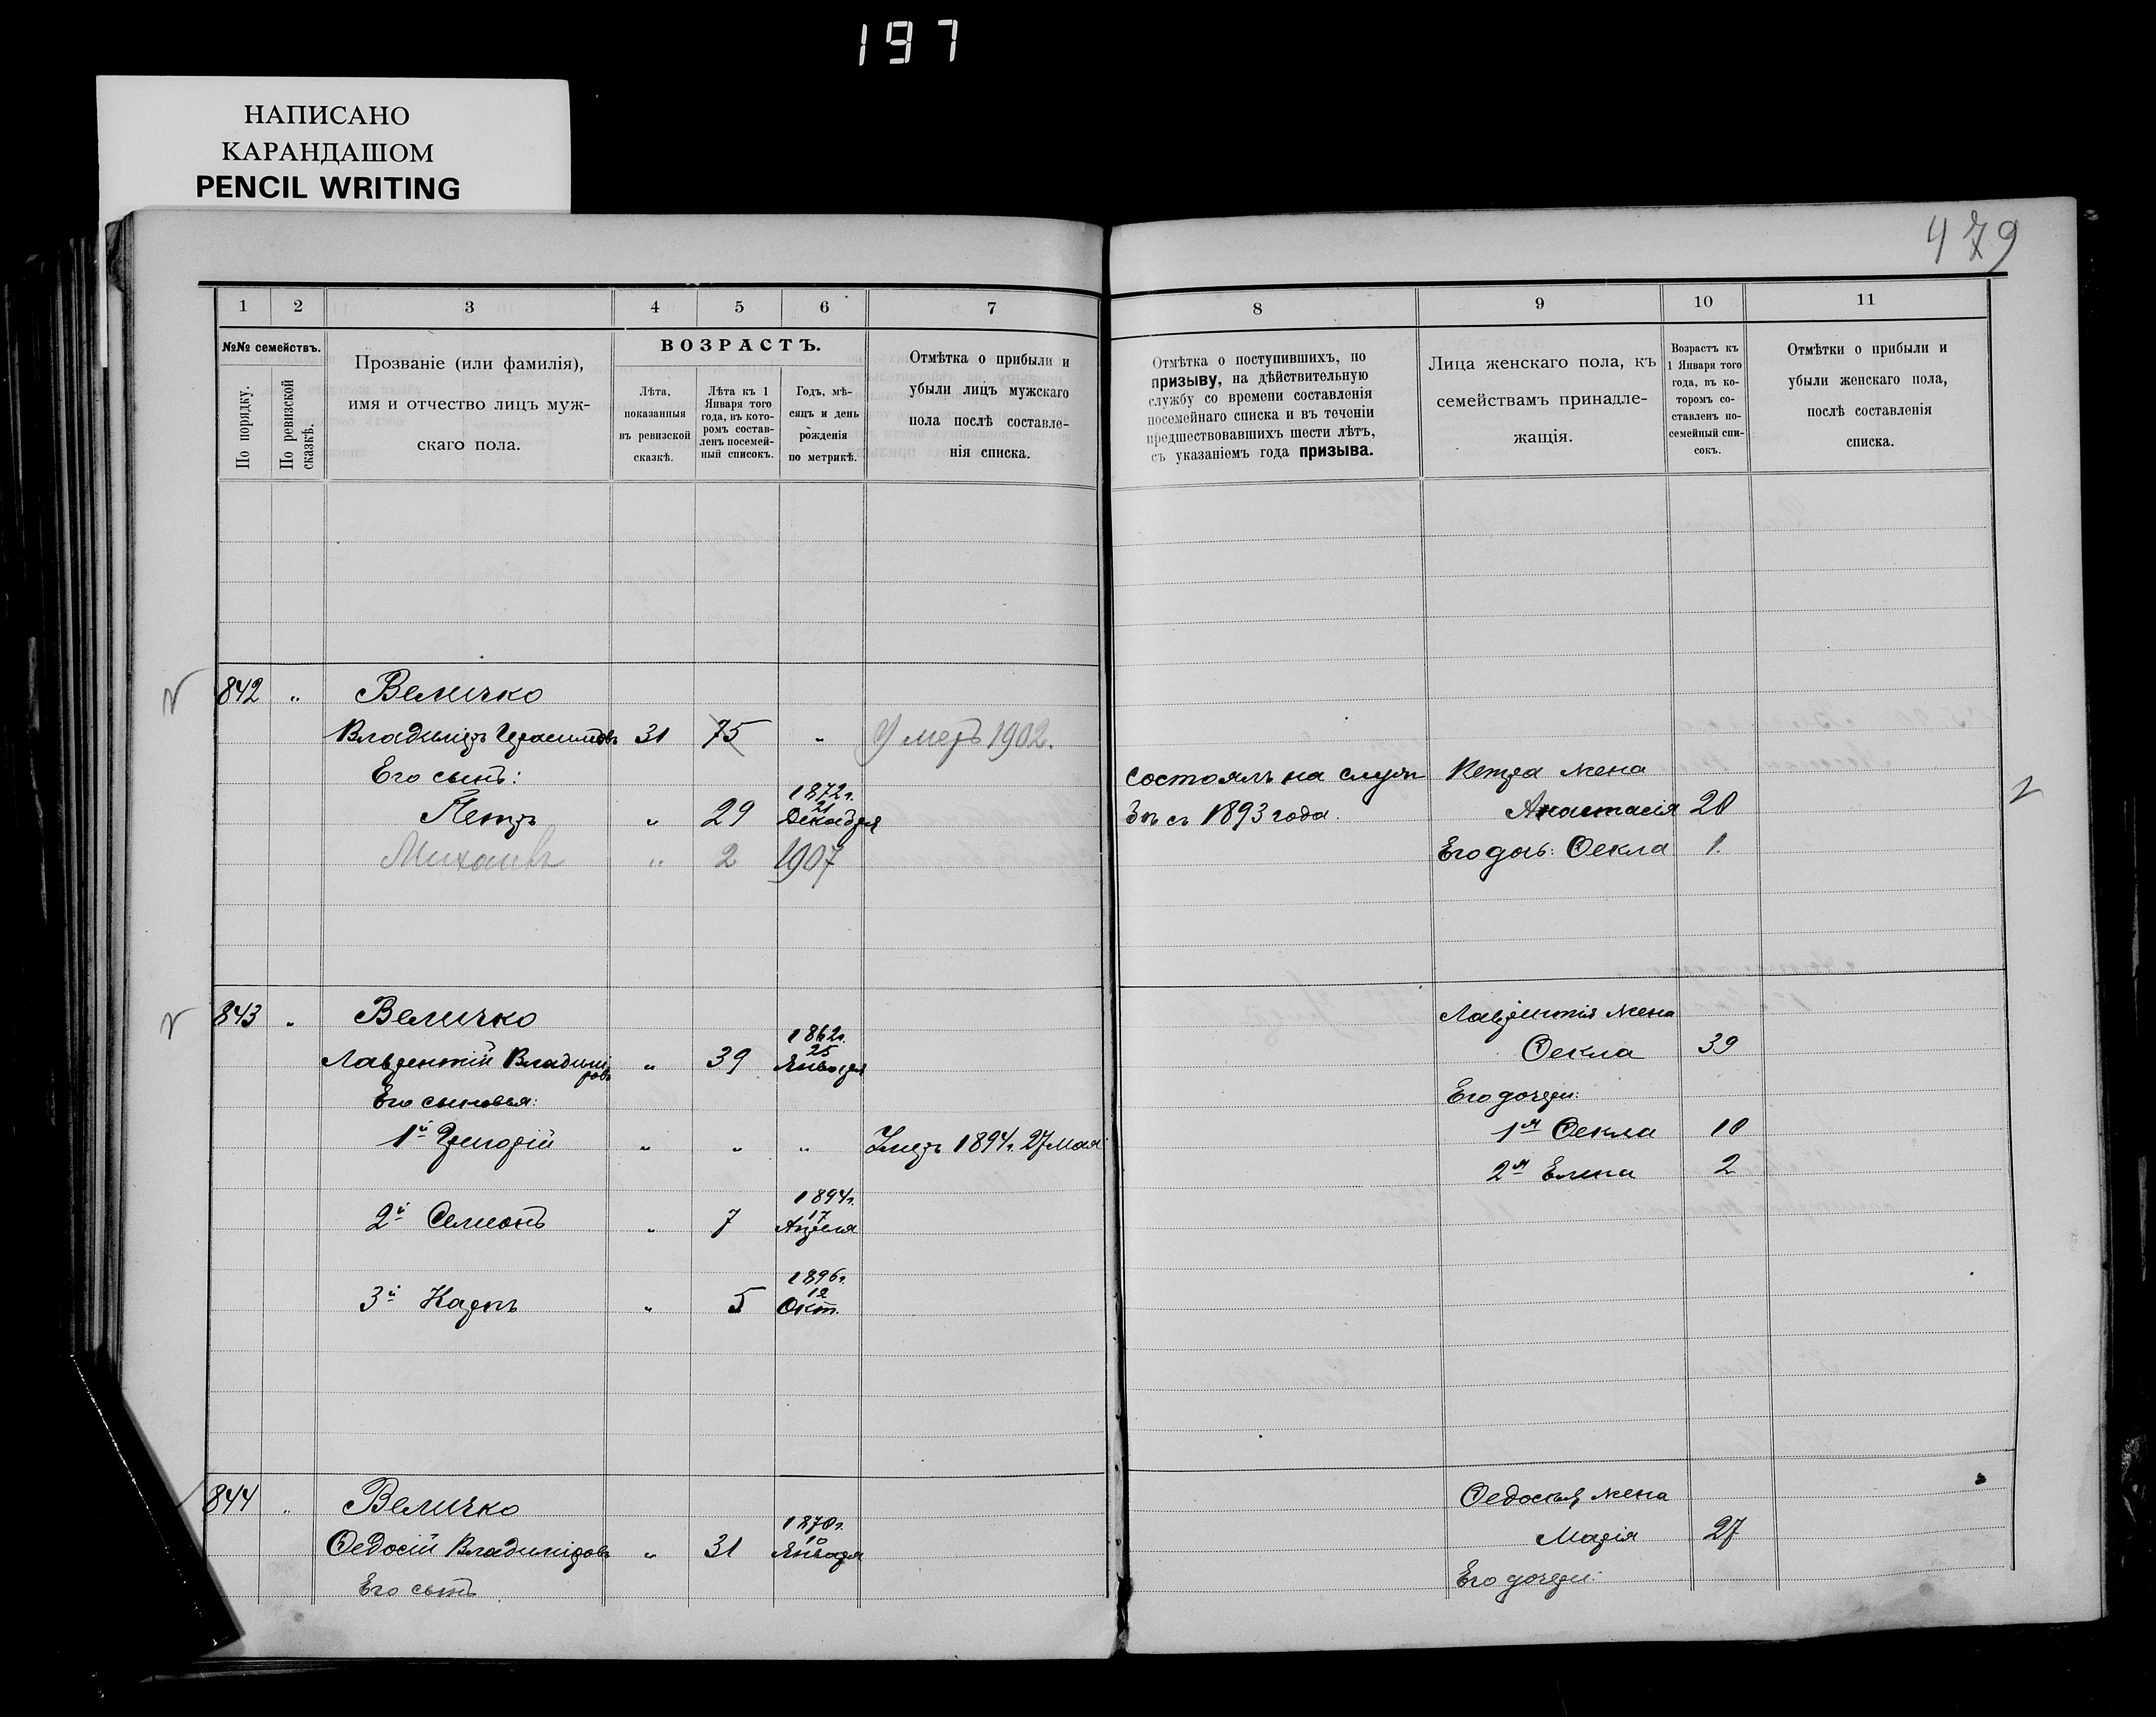 197
НАПИСАНО
КАРАНДАШОМ
PENCIL WRITING
479
1 2 3 4 5 6 7 8 9 10 11
№№ семействъ.
По порядку.
По ревизской сказкѣ.
Прозваніе (или фамилія),
имя и отчество лицъ муж-
скаго пола.
ВОЗРАСТЪ.
Лѣта,
показанныя
въ ревизской
сказкѣ.
Лѣта къ 1
Января того
года, въ кото-
ромъ состав-
ленъ посемей-
ный списокъ.
Годъ, мѣ-
сяцъ и день
рожденія
по метрикѣ.
Отмѣтка о прибыли и
убыли лицъ мужскаго
пола послѣ составле-
нія списка.
Отмѣтка о поступившихъ, по
призыву, на дѣйствительную
службу со времени составленія
посемейнаго списка и въ теченіи
предшествовавшихъ шести лѣтъ,
съ указаніемъ года призыва.
Лица женскаго пола, къ
семействамъ принадле-
жащія.
Возрастъ къ
1 Января того
года, въ ко-
торомъ со-
ставленъ по-
семейный спи-
сокъ.
Отмѣтки о прибыли и
убыли женскаго пола,
послѣ составленія
списка.
842 " Величко
Владиміръ Герасимовъ 31 75 " Умеръ 1902.
Его сынъ:
Петръ " 29 1872г. 21 Декабря
Михаилъ " 2 1907
состоялъ на служ
бѣ съ 1893 года.
Петра жена
Анастасія 20
Его дочь: Ѳекла 1.
843 " Величко
Лаврентій Владимі
ровъ " 39 1862г. 25 Января
Его сыновья:
1й Григорій " " " Умеръ 1894г. 27 Мая
2й Семіонъ " 7 1894г. 17 Апрѣля
3й Карпъ " 5 1896г. 12 Окт.
Лаврентія жена
Ѳекла 39
Его дочери:
1я Ѳекла 10
2я Елена 2
844 " Величко
Ѳедосій Владиміровъ " 31 1870г. 10 Января
Его сынъ
Ѳедосія жена
Марія 27
Его дочери: